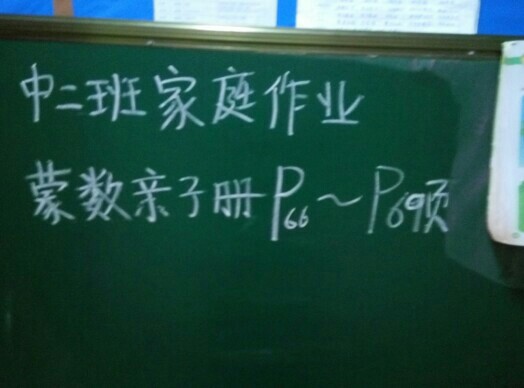 中二班家庭作业
蒙数亲子册P66～P69页